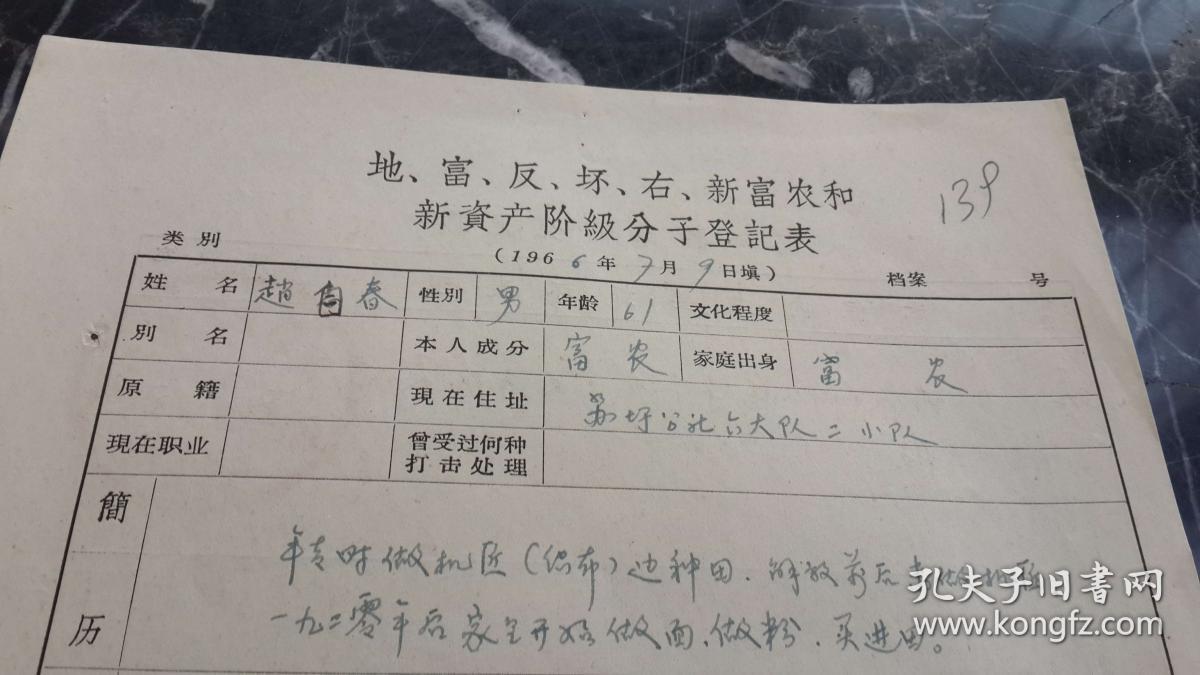 地、富、反、坏、右、新富农和
139
新資产阶級分子登記表
类別
(1966年7月9日填)
档案 号
姓名 趙自春 性別 男 年龄 61 文化程度
別名 本人成分 富农 家庭出身 富农
原籍 現在住址 苏圩公社六大队二小队
現在职业 曾受过何种打击处理
簡历
年青时做机匠(织布)边种田.解放前后
一九二零年后家里开始做面、做粉.买进田。
孔夫子旧书网
www.kongfz.com